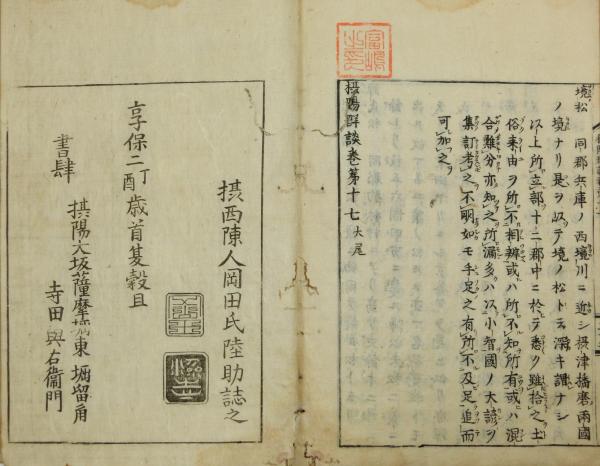 境松 同郡兵庫ノ西境川ニ近シ摂津播磨両國
ノ境ナリ是ヲ以テ境ノ松ト云深キ謂ナシ
以上所立部十二郡中ニ於テ悉ク雖拾之土
俗来由ヲ所不相辨或ハ所不知所有或ハ混
合難分亦知之所漏多ハ以小智國ノ大諺ヲ
集訂考之不明如モ手足之有所不及足追而
可加之ヲ
摂陽群談巻第十七大尾
摂西陳人岡田氏陸助誌之
享保二丁酉歳首夏穀旦
書肆 摂陽大坂薩摩堀東堀留角
寺田與右衞門